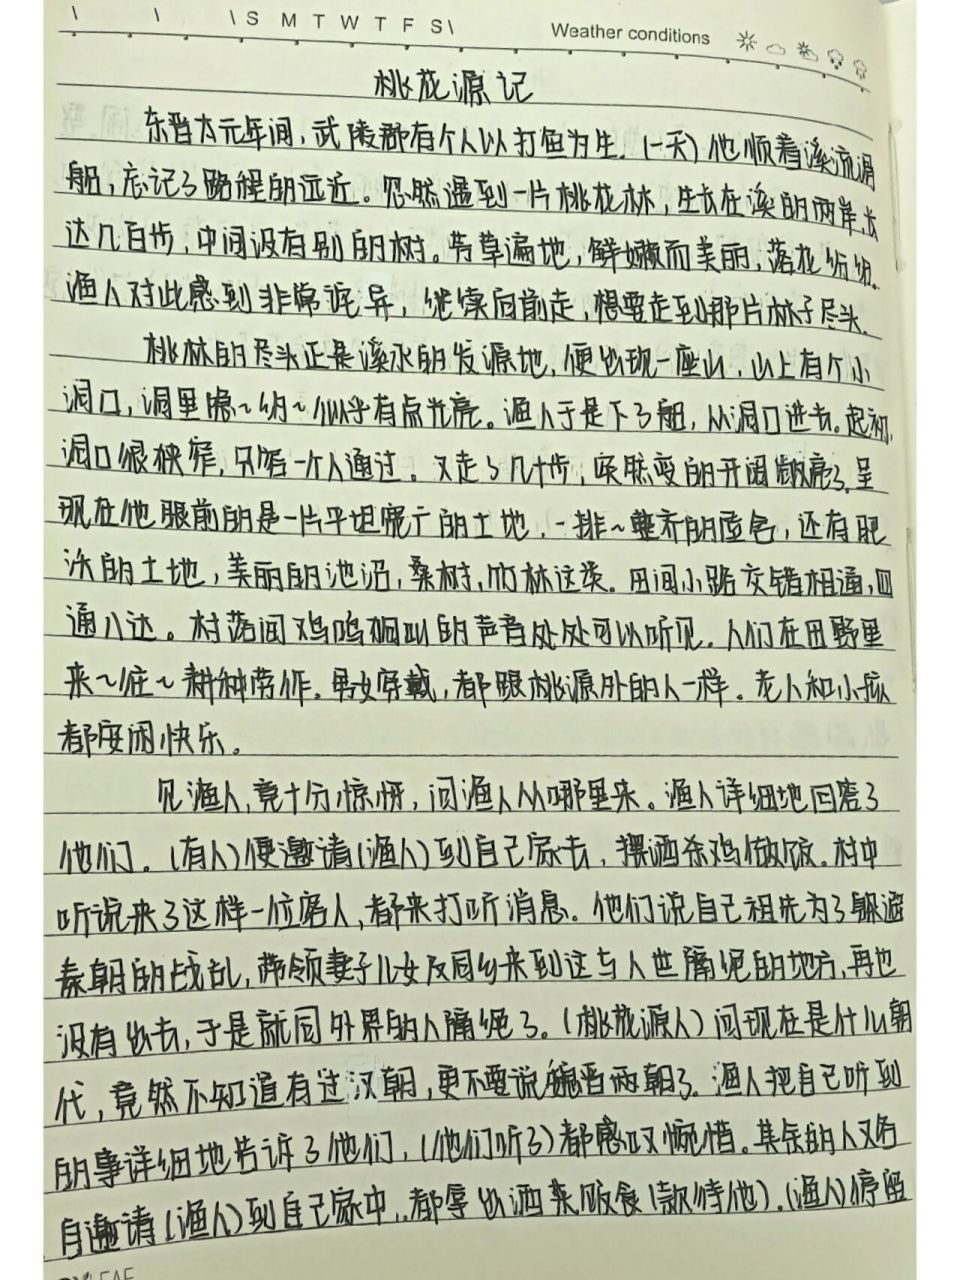 S M T W T F S Weather conditions
桃花源记
东晋太元年间，武陵郡有个人以打鱼为生．(一天)他顺着溪流滑
船，忘记了路程的远近。忽然遇到一片桃花林，生长在溪的两岸长
达几百步，中间没有别的树。芳草遍地，鲜嫩而美丽，落花纷纷。
渔人对此感到非常诧异，继续向前走，想要走到那片林子尽头．
桃林的尽头正是溪水的发源地，便出现一座山，山上有个小
洞口，洞里隐~约~似乎有点光亮。渔人于是下了船，从洞口进去．起初，
洞口很狭窄，只容一个人通过．又走了几十步，突然变的开阔敞亮了．呈
现在他眼前的是一片平坦宽广的土地．一排~整齐的屋舍，还有肥
沃的土地，美丽的池沼，桑树，竹林这类．田间小路交错相通，四
通八达。村落间鸡鸣狗叫的声音处处可以听见．人们在田野里
来~往~耕种劳作．男女穿戴，都跟桃源外的人一样．老人和小孩
都安闲快乐。
见渔人，竟十分惊讶，问渔人从哪里来。渔人详细地回答了
他们．(有人)便邀请(渔人)到自己家去，摆酒杀鸡做饭．村中
听说来了这样一位客人，都来打听消息．他们说自己祖先为了躲避
秦朝的战乱，带领妻子儿女及同乡来到这与人世隔绝的地方，再也
没有出去，于是就同外界的人隔绝了．(桃花源人)问现在是什么朝
代，竟然不知道有过汉朝，更不要说魏晋两朝了．渔人把自己听到
的事详细地告诉了他们，(他们听了)都感叹惋惜．其余的人又各
自邀请(渔人)到自己家中，都拿出酒菜饭食(款待他)．(渔人)停留